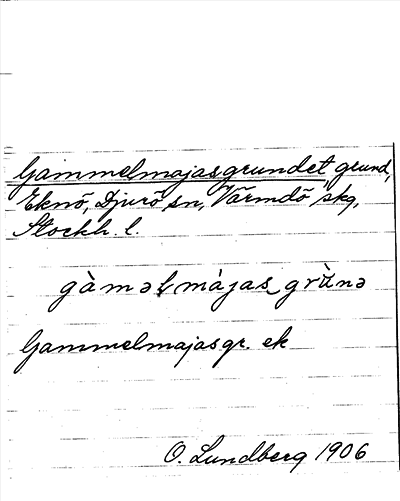 Gammelmajasgrundet, grund,
Eknö, Djurö sn, Värmdö skg,
Stockh. l.
gàməl màjas grùnə
Gammelmajasgr. ek
O. Lundberg 1906